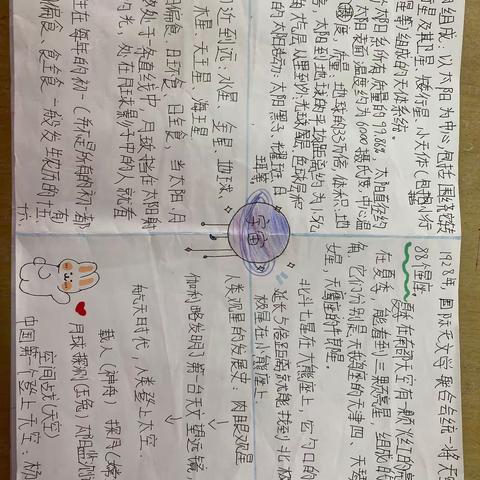 组成：以太阳为中心，包括围绕它转
行星及其卫星、矮行星、小天体（包括小行
星等组成的天体系统。
太阳系所有质量的99.86%，太阳直径约
太阳表面温度约为6000摄氏度，中心温
度，质量：地球的33万倍，体积：地
太阳到地球的平均距离约为1.5亿
大气层从里到外：光球层、色球层和
的太阳活动：太阳黑子、耀斑、日
珥等
近到远：水星、金星、地球、
木星、天王星、海王星
日偏食、日环食、日全食，当太阳、月
处于一条直线中，月球挡住太阳射
的光，处在月球影子中的人就看
生在每年的初一（并不是所有的初一都有
偏食、月全食，一般发生在农历的十五、
宇宙
1928年，国际天文学联合会统一将天空
88个星座
夏季在南部天空有一颗火红的亮
在夏季，能看到三颗亮星，组成的
角，它们分别是天鹅座的天津四、天琴
女星，天鹰座的牛郎星。
北斗七星在大熊座上，它勺口的
延长5倍距离就能找到北极
极星在小熊座上
人类观星的发展史：肉眼观星
伽利略发明了第一台天文望远镜，
航天时代，人类登上太空：
载人（神舟） 探月（嫦
月球探测（玉兔）太阳监测
空间站（天宫）
中国第一个登上天空：杨